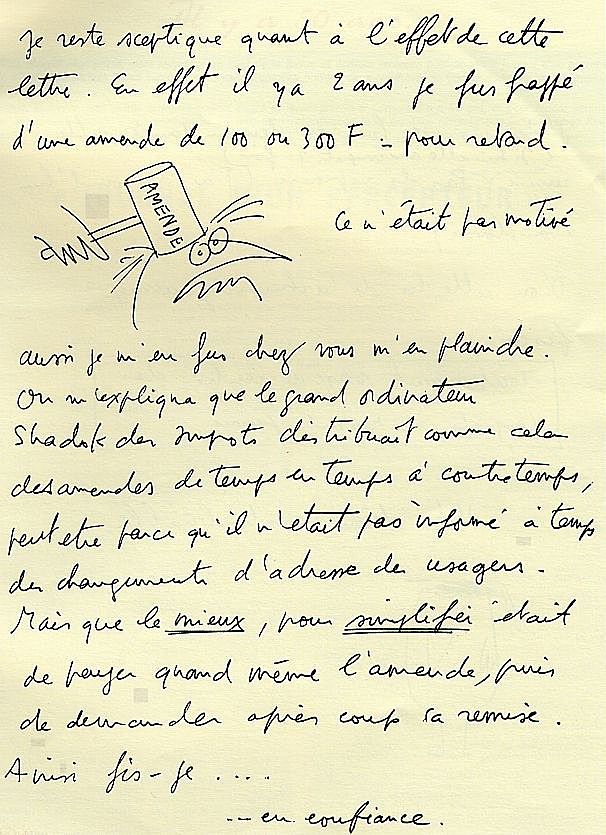 Je reste sceptique quant à l'effet de cette
lettre. En effet il y a 2 ans je fus frappé
d'une amende de 100 ou 300 F - pour retard.
AMENDE
Ce n'était pas motivé
aussi je m'en fus chez vous m'en plaindre.
On m'expliqua que le grand ordinateur
Shadok des Impots distribuait comme cela
des amendes de temps en temps à contretemps,
peut etre parce qu'il n'était pas informé à temps
des changements d'adresse des usagers.
Mais que le mieux, pour simplifier était
de payer quand même l'amende, puis
de demander après coup sa remise.
Ainsi fis-je ....
... en confiance.